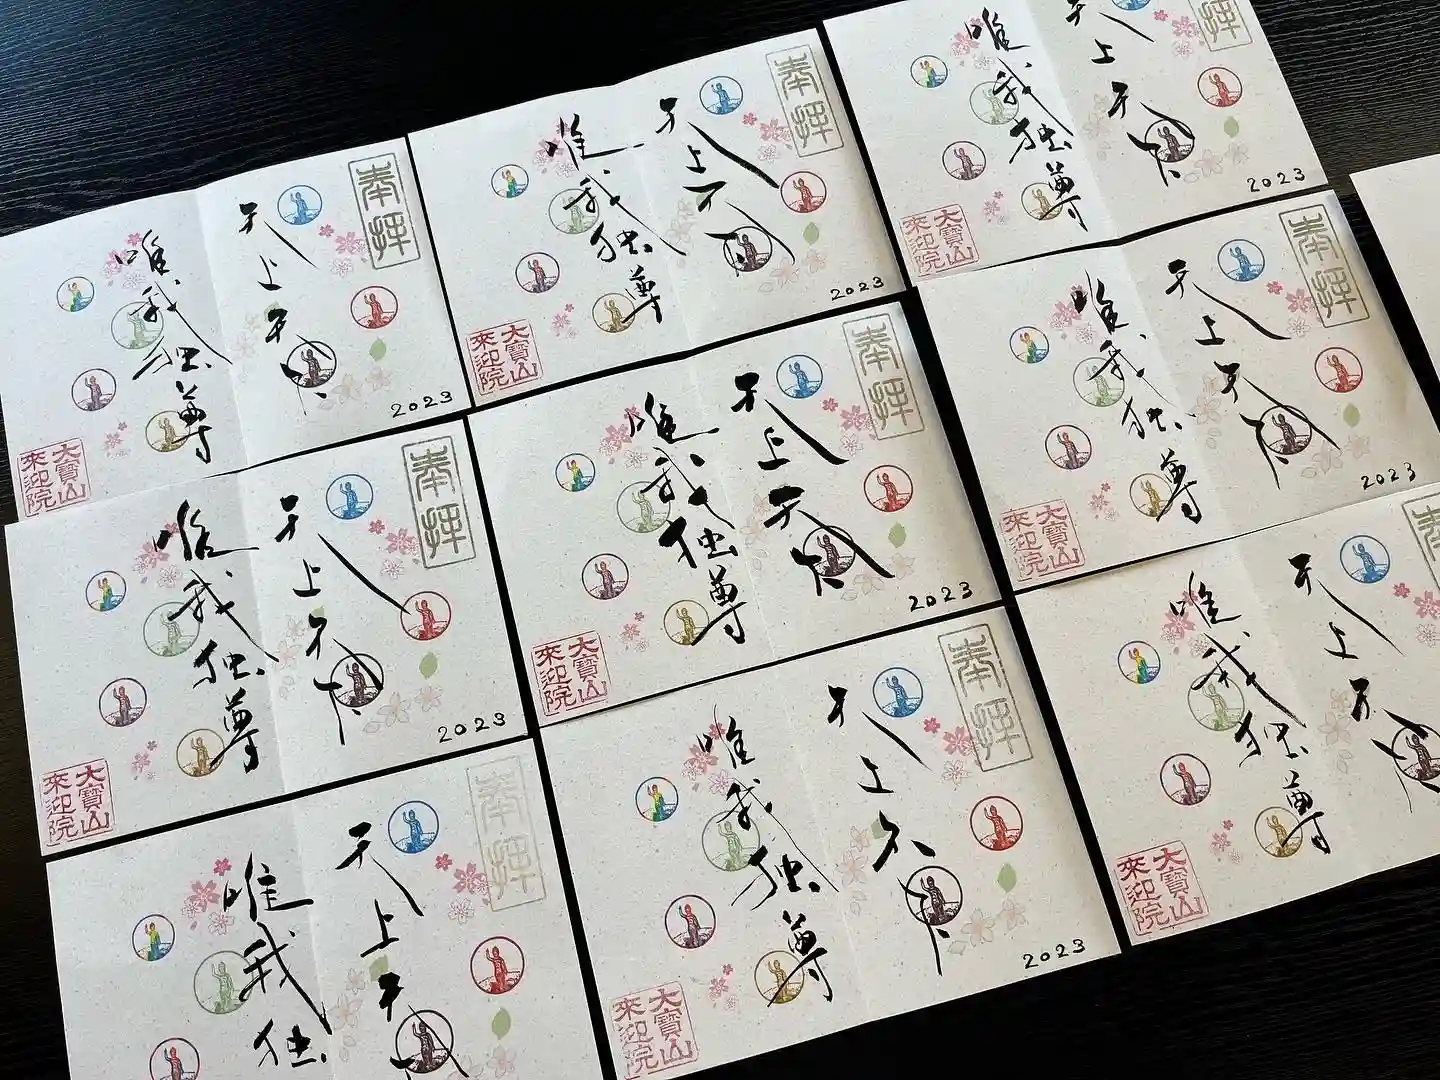 奉拝
天上天下
唯我独尊
2023
大寶山
來迎院
奉拝
天上天下
唯我独尊
2023
大寶山
來迎院
拝
天上天下
唯我独尊
2023
大寶山
來迎院
奉拝
天上天下
唯我独尊
2023
大寶山
來迎院
奉拝
天上天下
唯我独尊
2023
大寶山
來迎院
奉拝
天上天下
唯我独尊
2023
大寶山
來迎院
奉拝
天上天下
唯我独
奉拝
天上天下
唯我独尊
2023
大寶山
來迎院
奉
天上天下
唯我独尊
大寶山
來迎院